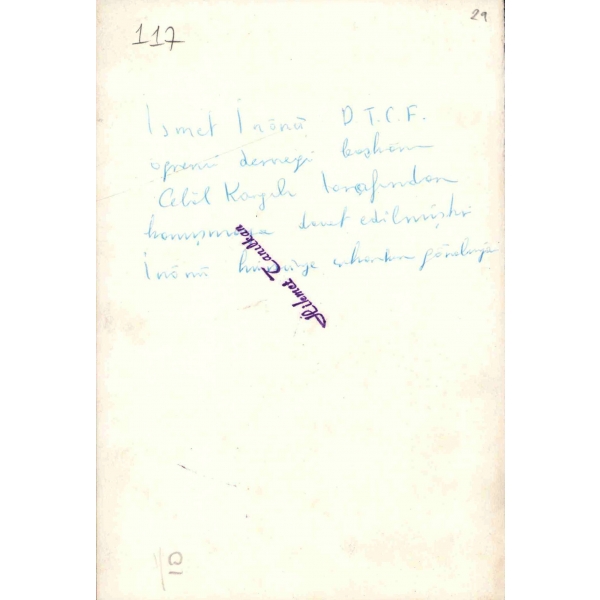 29
117
İsmet İnönü D T.C.F.
öğrenci derneği başkanı
Celil tarafından
konuşmaya davet edilmiştir
İnönü kürsüye çıkarken görülüyor
Hikmet Tanılkan